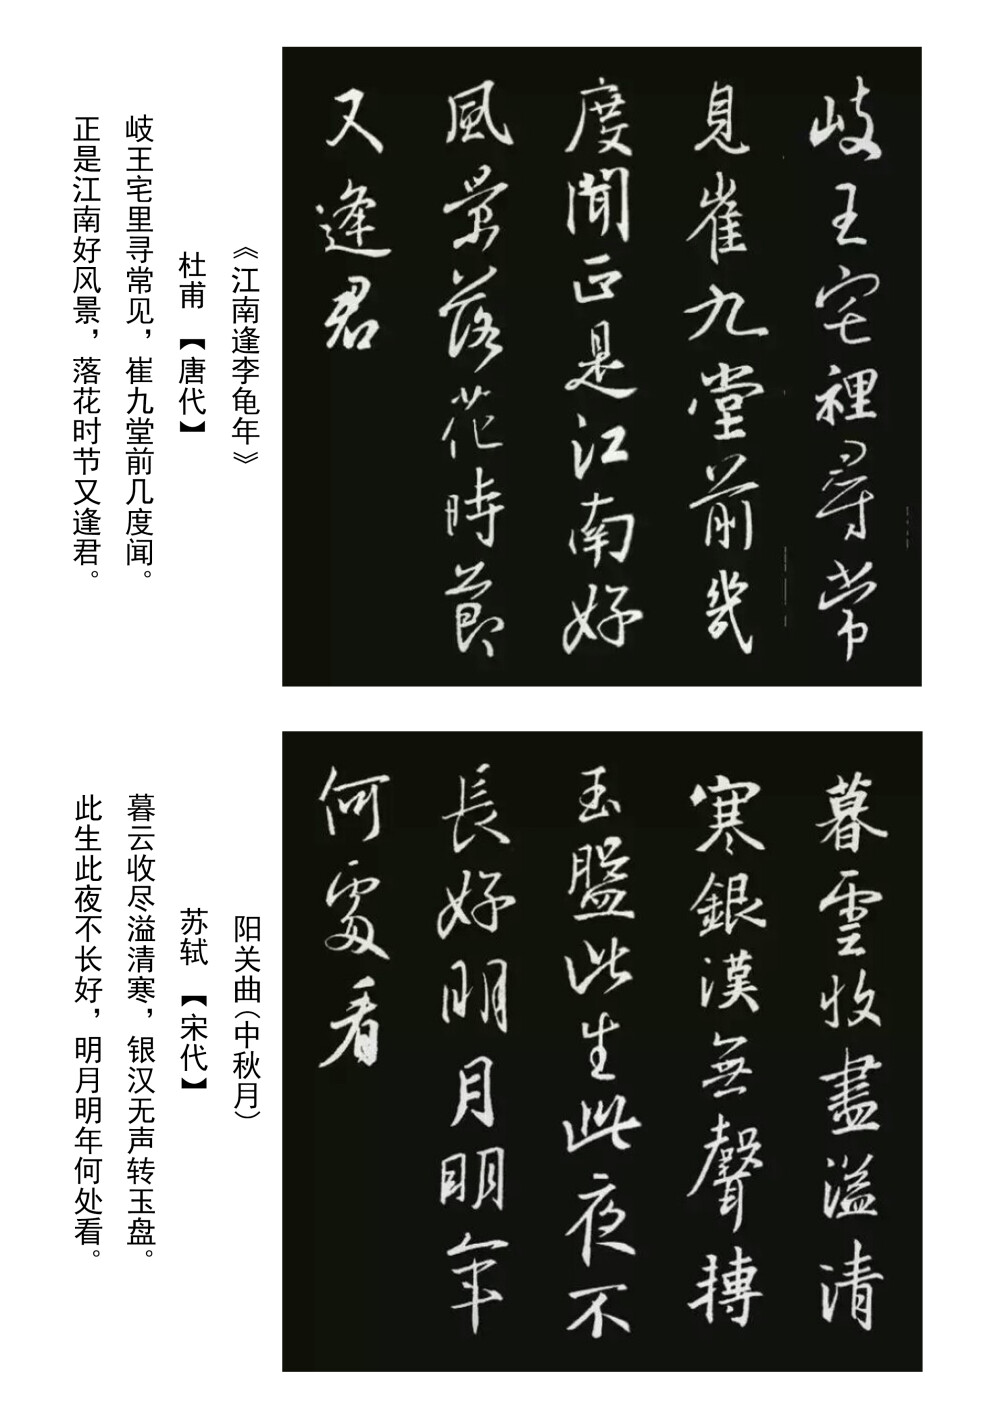 岐王宅裡尋常
見崔九堂前幾
度聞正是江南好
風景落花時節
又逢君
《江南逢李龟年》
杜甫 【唐代】
岐王宅里寻常见，崔九堂前几度闻。
正是江南好风景，落花时节又逢君。
暮雲收盡溢清
寒銀漢無聲摶
玉盤此生此夜不
長好明月明年
何處看
阳关曲（中秋月）
苏轼 【宋代】
暮云收尽溢清寒，银汉无声转玉盘。
此生此夜不长好，明月明年何处看。